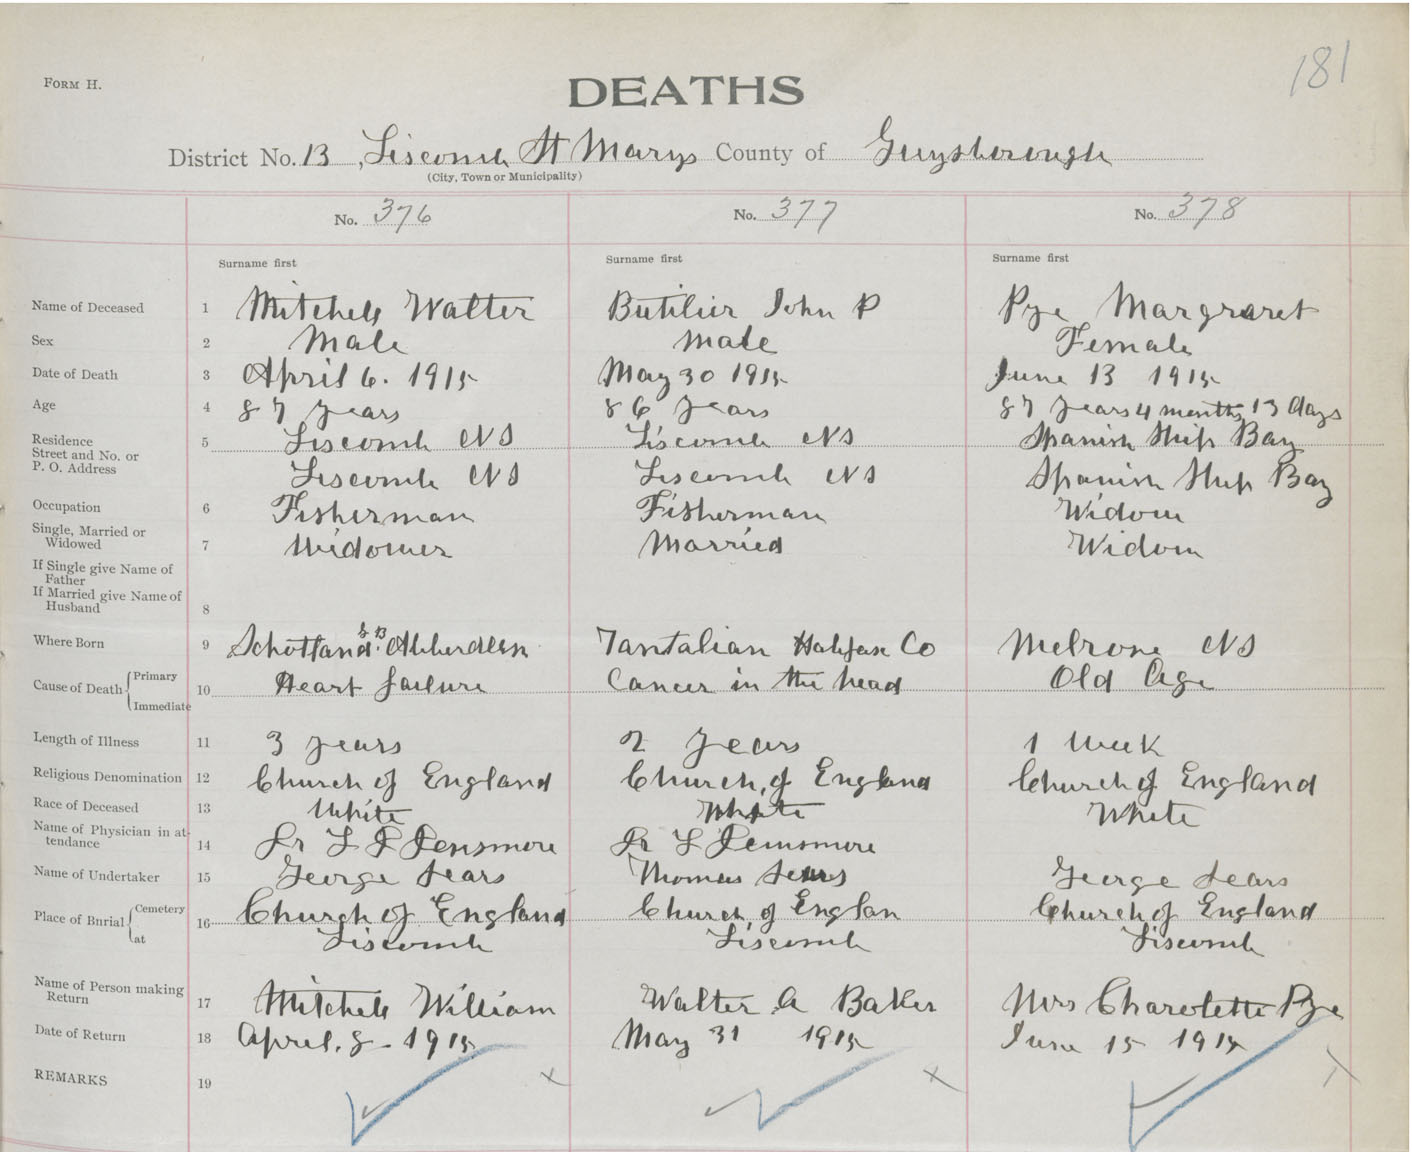 181
FORM H.
DEATHS
District No. 13, Liscomb St Marys County of Guysborough
(City, Town or Municipality)
No. 376 No. 377 No. 378
Surname first Surname first Surname first
Name of Deceased 1 Mitchell Walter Butilier John P Pye Margraret
Sex 2 Male Male Female
Date of Death 3 April 6. 1915 May 30 1915 June 13 1915
Age 4 87 years 86 years 87 years 4 months 13 days
Residence 5 Liscomb NS Liscomb NS Spanish Ship Bay
Street and No. or
P. O. Address Liscomb NS Liscomb NS Spanish Ship Bay
Occupation 6 Fisherman Fisherman Widow
Single, Married or
Widowed 7 Widower Married Widow
If Single give Name of
Father
If Married give Name of
Husband 8
Where Born 9 Schottland Abberdeen Tantalian Halifax Co Melrose NS
Cause of Death Primary 10 Heart failure Cancer in the head Old Age
Immediate
Length of Illness 11 3 years 2 years 1 Week
Religious Denomination 12 Church of England Church of England Church of England
Race of Deceased 13 White White White
Name of Physician in at-
tendance 14 Dr Densmore Dr Densmore
Name of Undertaker 15 George Sears Thomas Sears George Sears
Place of Burial Cemetery 16 Church of England Church of Englan Church of England
at Liscomb Liscomb Liscomb
Name of Person making
Return 17 Mitchell William Walter A Baker Mrs Charolette Pye
Date of Return 18 April. 8 1915 May 31 1915 June 15 1915
REMARKS 19